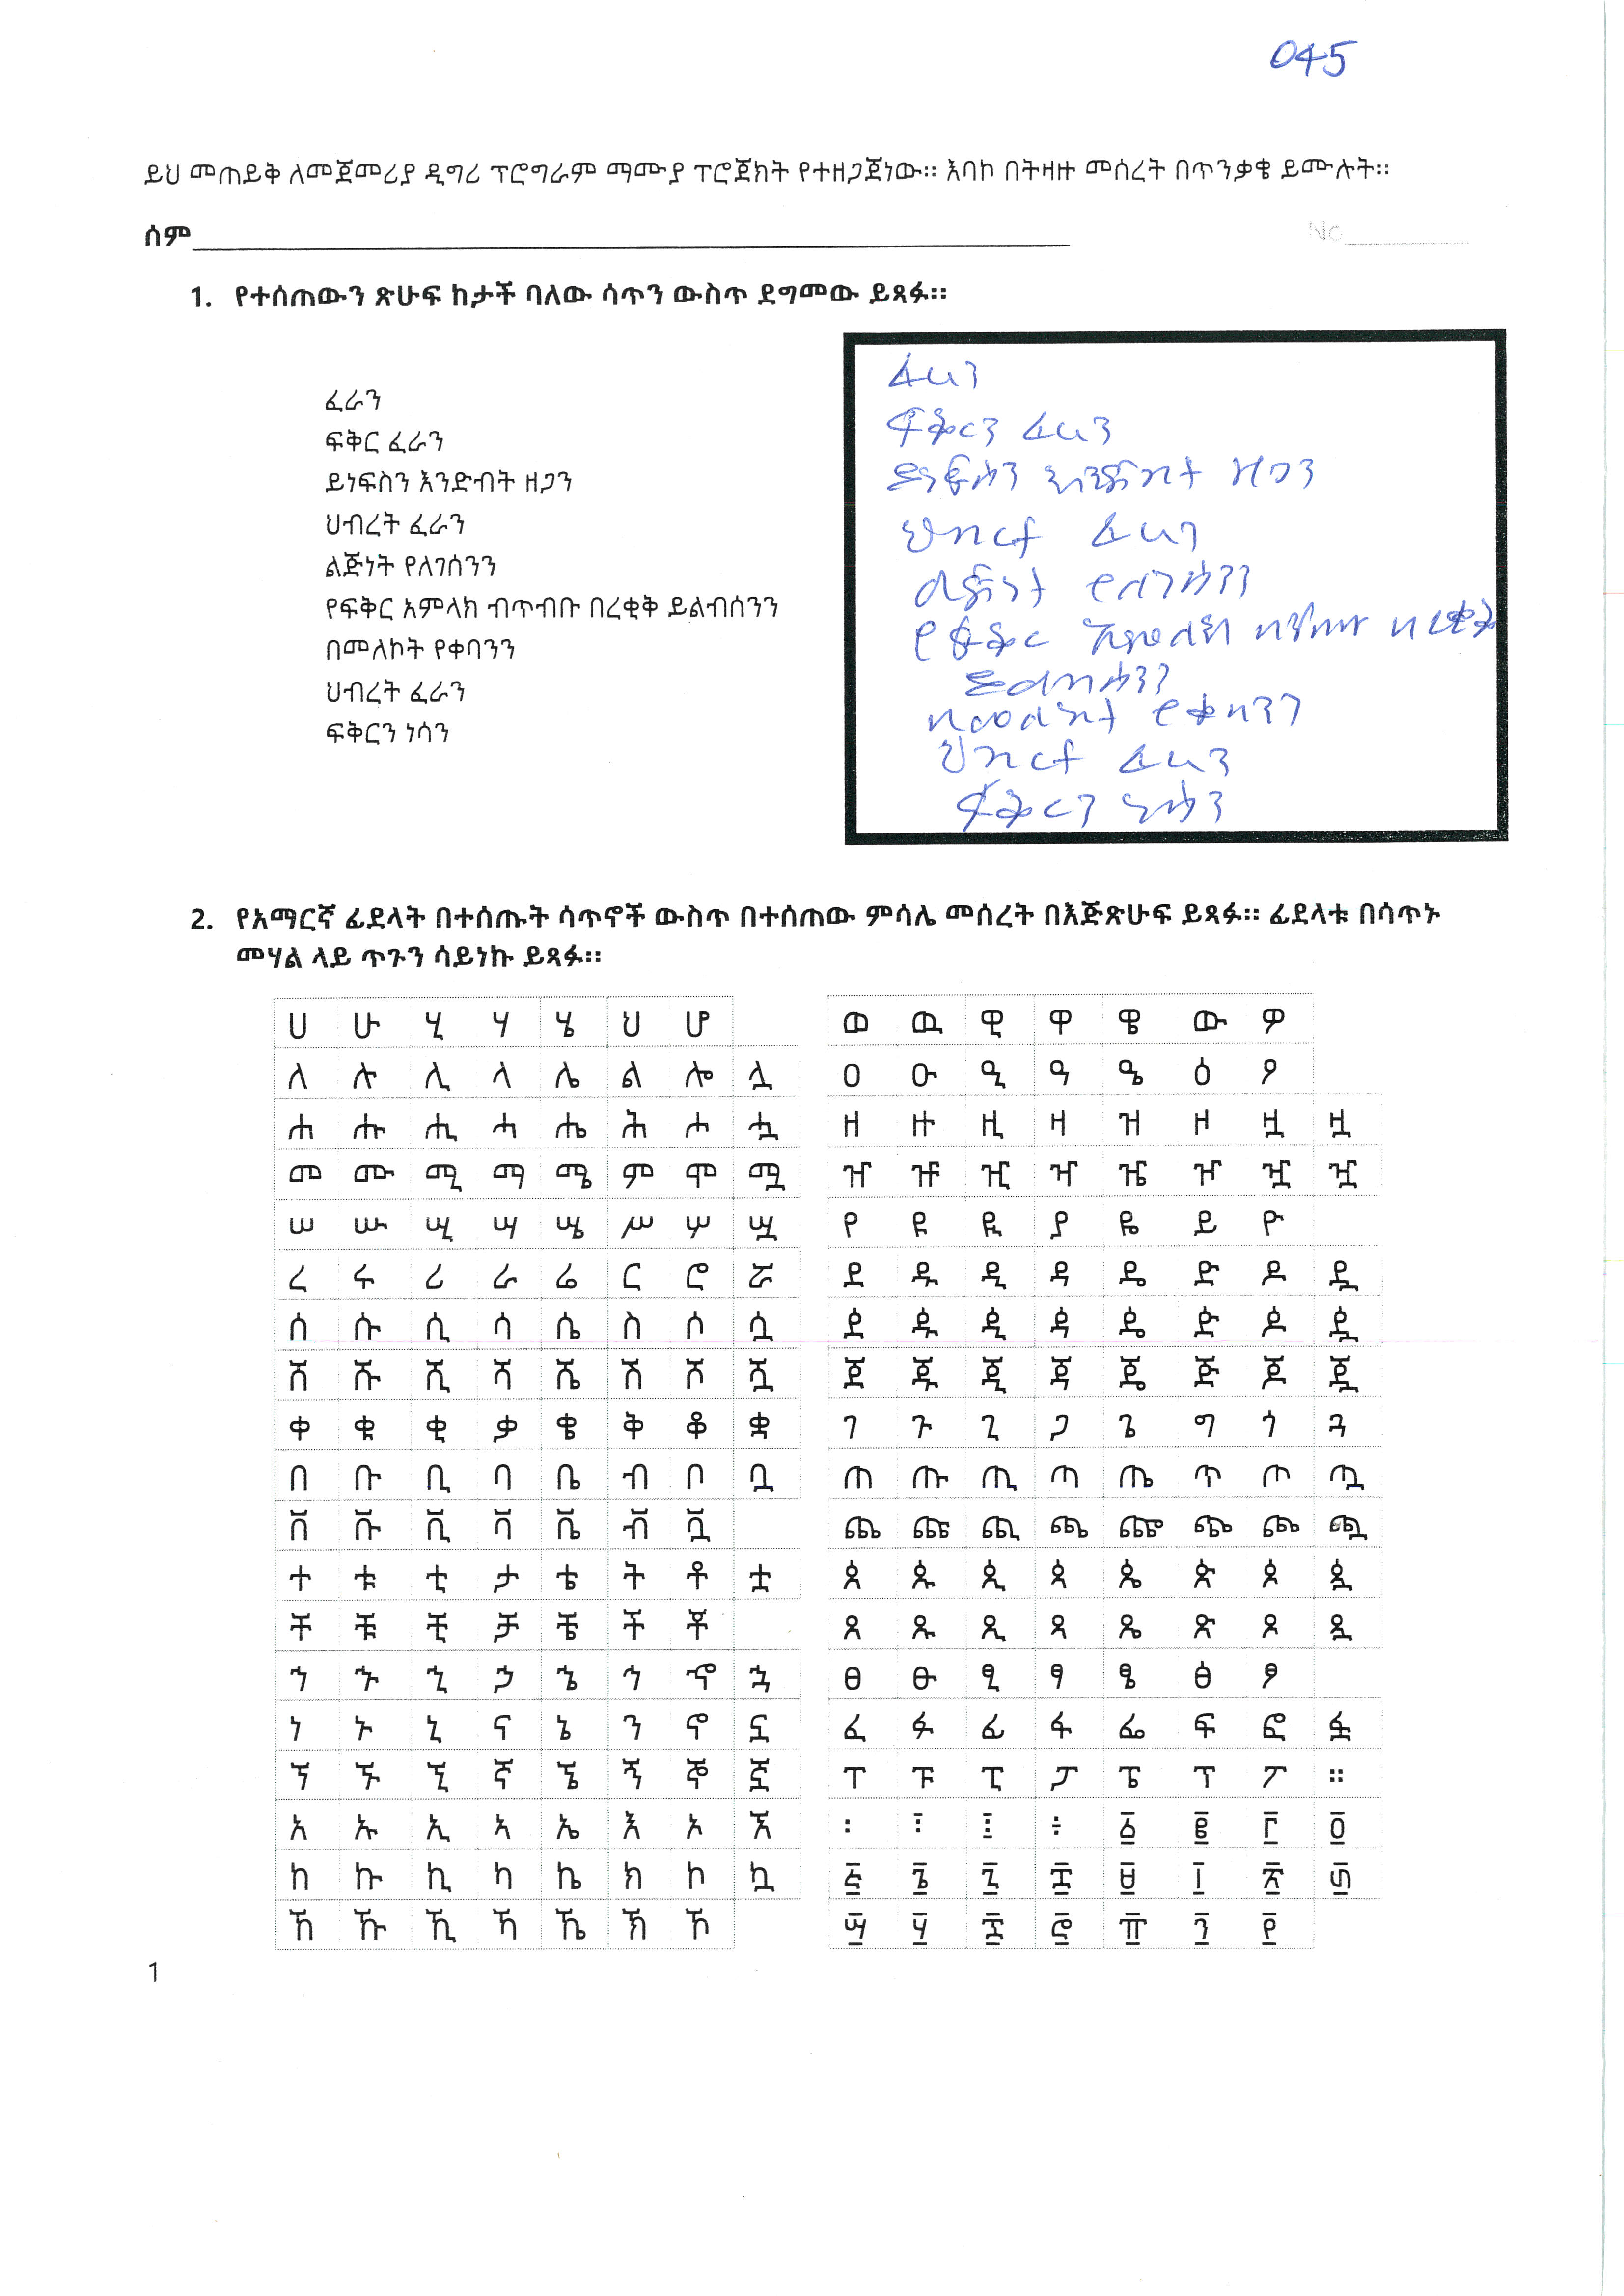 045
ይህ መጠይቅ ለመጀመሪያ ዲግሪ ፕሮግራም ማሙያ ፕሮጀክት የተዘጋጀነው። እባኮ በትዛዙ መሰረት በጥንቃቄ ይሙሉት።
ሰም
No
1. የተሰጠውን ጽሁፍ ከታች ባለው ሳጥን ውስጥ ደግመው ይጻፉ።
ፈራን
ፍቅር ፈራን
ይነፍስን እንድብት ዘጋን
ህብረት ፈራን
ልጅነት የለገሰንን
የፍቅር አምላክ ብጥብቡ በረቂቅ ይልብሰንን
በመለኮት የቀባንን
ህብረት ፈራን
ፍቅርን ነሳን
ፈራን
ፍቅርን ፈራን
ይነፍስን እንድብት ዘጋን
ህብረት ፈራን
ልጅነት የለገሰንን
የፍቅር አምላክ ብጥብቡ በረቂቅ
ይልብሰንን
በመለኮት የቀባንን
ህብረት ፈራን
ፍቅርን ነሳን
2. የአማርኛ ፊደላት በተሰጡት ሳጥኖች ውስጥ በተሰጠው ምሳሌ መሰረት በእጅጽሁፍ ይጻፉ። ፊደላቱ በሳጥኑ
መሃል ላይ ጥጉን ሳይነኩ ይጻፉ።
ሀ ሁ ሂ ሃ ሄ ህ ሆ
ለ ሉ ሊ ላ ሌ ል ሎ ሏ
ሐ ሑ ሒ ሓ ሔ ሕ ሖ ሗ
መ ሙ ሚ ማ ሜ ም ሞ ሟ
ሠ ሡ ሢ ሣ ሤ ሥ ሦ ሧ
ረ ሩ ሪ ራ ሬ ር ሮ ሯ
ሰ ሱ ሲ ሳ ሴ ስ ሶ ሷ
ሸ ሹ ሺ ሻ ሼ ሽ ሾ ሿ
ቀ ቁ ቂ ቃ ቄ ቅ ቆ ቋ
በ ቡ ቢ ባ ቤ ብ ቦ ቧ
ቨ ቩ ቪ ቫ ቬ ቭ ቯ
ተ ቱ ቲ ታ ቴ ት ቶ ቷ
ቸ ቹ ቺ ቻ ቼ ች ቾ
ኀ ኁ ኂ ኃ ኄ ኅ ኆ ኋ
ነ ኑ ኒ ና ኔ ን ኖ ኗ
ኘ ኙ ኚ ኛ ኜ ኝ ኞ ኟ
አ ኡ ኢ ኣ ኤ እ ኦ ኧ
ከ ኩ ኪ ካ ኬ ክ ኮ ኳ
ኸ ኹ ኺ ኻ ኼ ኽ ኾ
ወ ዉ ዊ ዋ ዌ ው ዎ
ዐ ዑ ዒ ዓ ዔ ዕ ዖ
ዘ ዙ ዚ ዛ ዝ ዞ ዟ ዟ
ዠ ዡ ዢ ዣ ዤ ዦ ዧ ዧ
የ ዩ ዪ ያ ዬ ይ ዮ
ደ ዱ ዲ ዳ ዴ ድ ዶ ዷ
ዸ ዹ ዺ ዻ ዼ ዽ ዾ ዿ
ጀ ጁ ጂ ጃ ጄ ጅ ጆ ጇ
ገ ጉ ጊ ጋ ጌ ግ ጎ ጓ
ጠ ጡ ጢ ጣ ጤ ጥ ጦ ጧ
ጰ ጱ ጲ ጳ ጴ ጵ ጶ ጷ
ጸ ጹ ጺ ጻ ጼ ጽ ጾ ጿ
ፀ ፁ ፂ ፃ ፄ ፅ ፆ
ፈ ፉ ፊ ፋ ፌ ፍ ፎ ፏ
ፐ ፑ ፒ ፓ ፔ ፕ ፖ ።
1